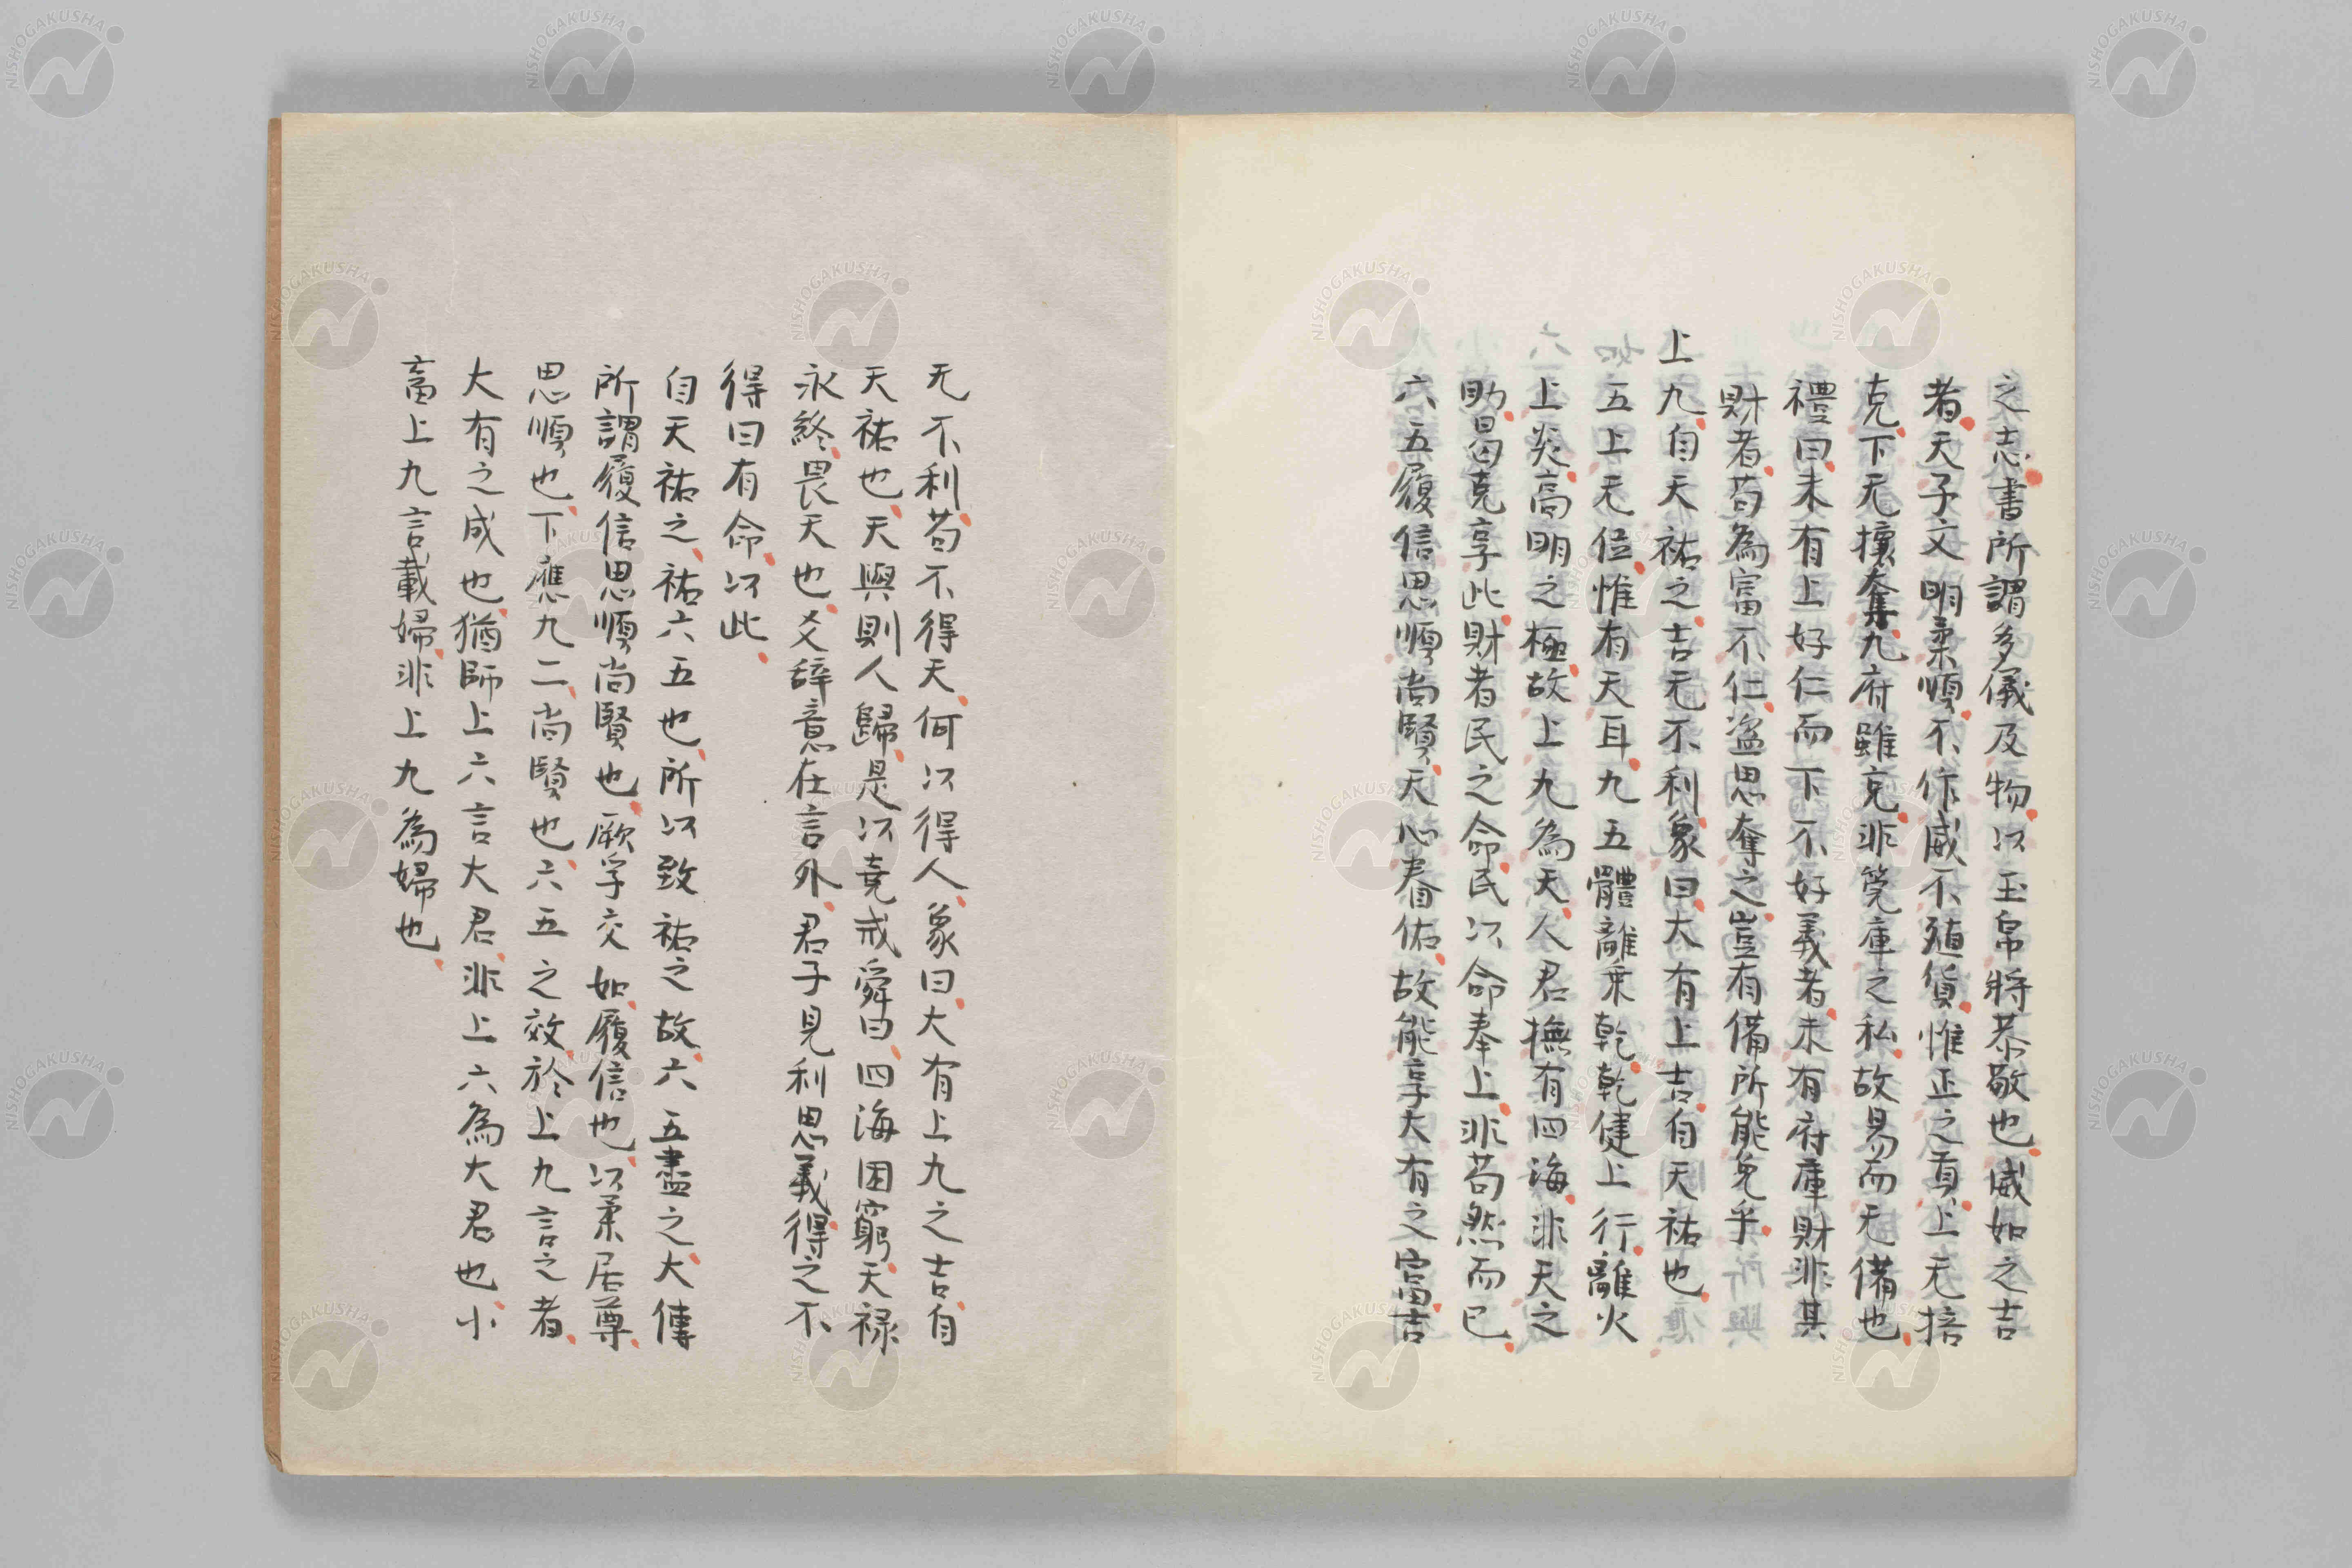 之志書所謂多儀及物以玉帛將恭敬也威如之吉
者天子文明柔順不作威不殖貨惟正之貢上无掊
克下无攘奪九府雖充非筦庫之私故易而无備也
禮曰未有上好仁而下不好義者未有府庫財非其
財者苟為富不仁盜思奪之豈有備所能免乎
上九自天祐之吉无不利象曰大有上吉自天祐也
五上无位惟有天耳九五體離乘乾乾健上行離火
上炎高明之極故上九為天人君撫有四海非天之
助曷克享此財者民之命民以命奉上非苟然而已
六五履信思順尚賢天心眷佑故能享大有之富吉
无不利苟不得天何以得人象曰大有上九之吉自
天祐也天與則人歸是以堯戒舜曰四海困窮天祿
永終畏天也爻辭意在言外君子見利思義得之不
得曰有命以此
自天祐之祐六五也所以致祐之故六五盡之大傳
所謂履信思順尚賢也厥孚交如履信也以柔居尊
思順也下應九二尚賢也六五之效於上九言之者
大有之成也猶師上六言大君非上六為大君也小
畜上九言載婦非上九為婦也
NISHOGAKUSHA